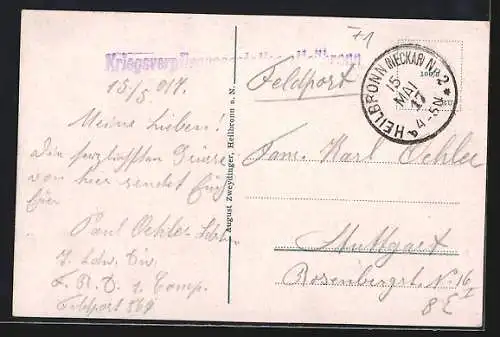 Kriegsverpflegungsstation Heilbronn
+1
15/5. 017.
Feldpost
HEILBRONN (NECKAR) N. 2
15 MAI 17
4-5N
Meine Lieben!
Die herzlichsten Grüsse
von hier sendet Euch
Euer
Paul Oehler
7. Ldw. Div.
1. Comp.
Feldpost 569
August Zweydinger, Heilbronn a. N.
Fam. Karl Oehler
Stuttgart
Rosenbergst. N. 16
8 E